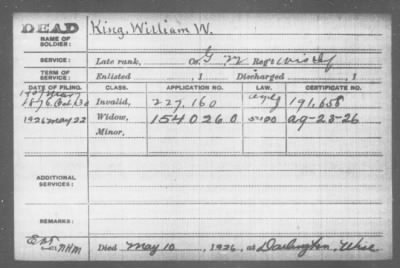 DEAD
NAME OF SOLDIER:
King, William W.
SERVICE:
Late rank, Co. G 22 Reg't Wis Inf
TERM OF SERVICE:
Enlisted , 1 Discharged , 1
DATE OF FILING. CLASS. APPLICATION NO. LAW. CERTIFICATE NO.
1876 Oct. 30 Invalid, 227,160 191,658
1926 May 22 Widow, 1540260 ag-23-26
Minor,
ADDITIONAL SERVICES:
REMARKS:
Died May 10, 1926, at Darlington, Wisc
NHM